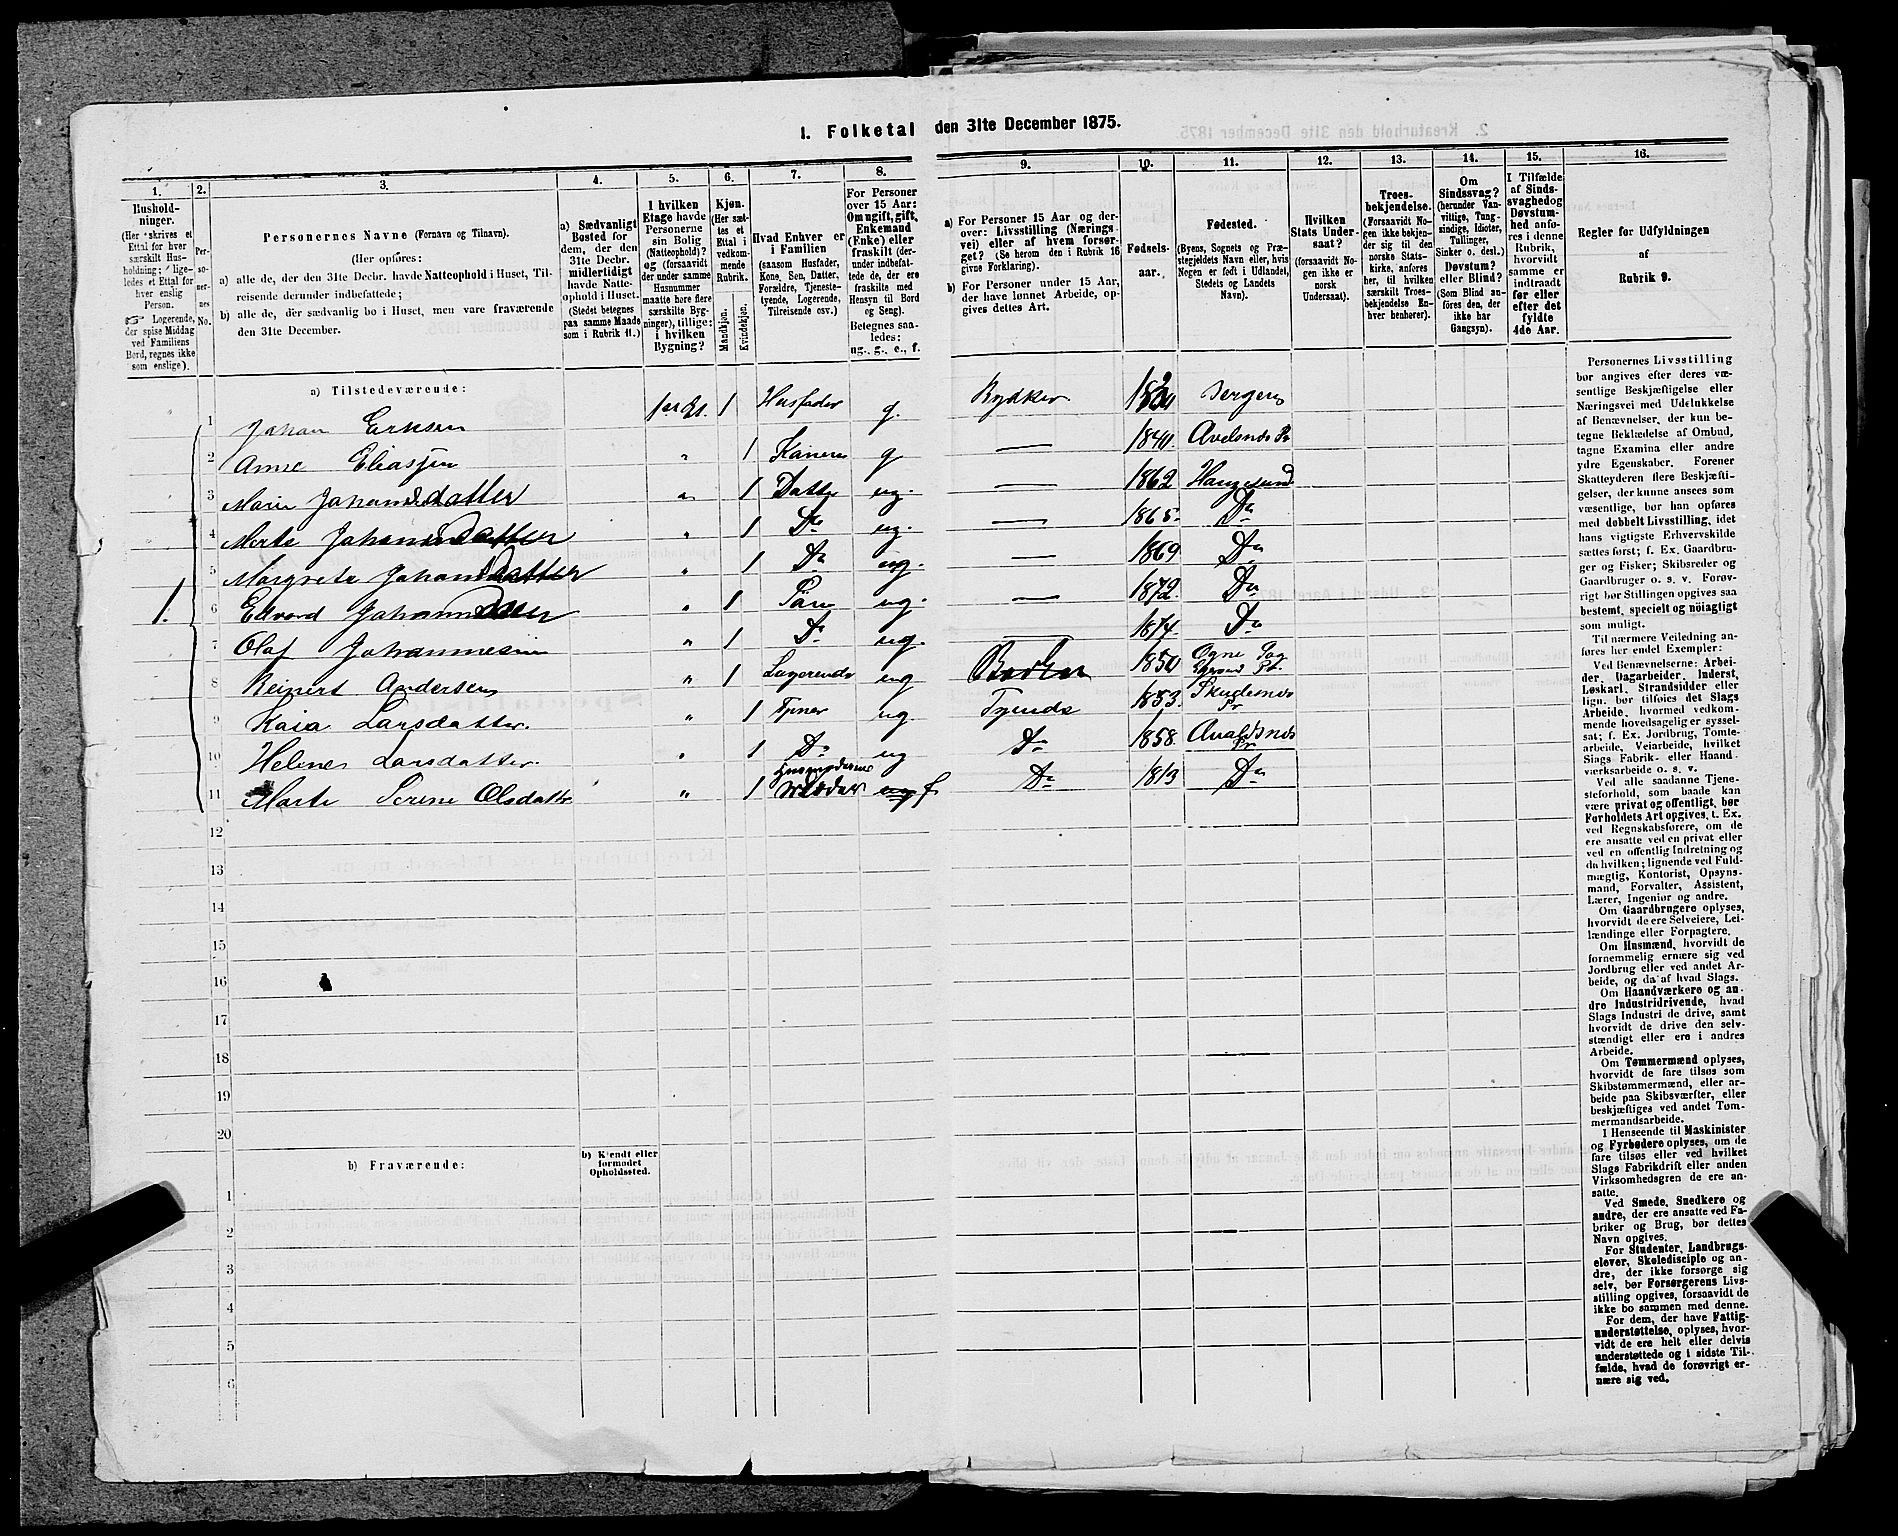 1. Folketal den 31te December 1875.
1. 2. 3. 4. 5. 6. 7. 8. 9. 10. 11. 12. 13. 14. 15. 16.
Hushold-
ninger.
(Her skrives et
Ettal for hver
særskilt Hus-
holdning; lige-
ledes et Ettal for
hver enslig
Person.
Logerende,
der spise Middag
ved Familiens
Bord, regnes ikke
som enslige).
Per-
so-
ner-
nes
No.
Personernes Navne (Fornavn og Tilnavn).
(Her opføres:
a) alle, der den 31te Decbr. havde Natteophold i Huset, Til-
reisende derunder indbefattede;
b) alle, der sædvanlig bo i Huset, men vare fraværende
den 31te December.
a) Sædvanligt
Bosted for
dem, der den
31te Decbr.
midlertidigt
havde Natte-
ophold i Huset.
(Stedet betegnes
paa samme Maade
som i Rubrik 11.)
I hvilken
Etage havde
Personerne
sin Bolig
(Natteophold)?
og (forsaavidt
der under samme
Husnummer
maatte høre flere
særskilte Byg-
ninger), tillige:
i hvilken
Bygning?
Kjøn.
(Her sæt-
tes et
Ettal i
vedkom-
mende
Rubrik.
Mandkjøn.
Kvindekjøn.
Hvad Enhver er
i Familien
(saasom Husfader,
Kone, Søn, Datter,
Forældre, Tjeneste-
tyende, Logerende,
Tilreisende osv.)
For Personer
over 15 Aar:
Om ugift, gift,
Enkemand
(Enke) eller
fraskilt (der-
under indbefat-
tede de, der ere
fraskilte med
Hensyn til Bord
og Seng).
Betegnes saa-
ledes:
ug., g., e., f.
a) For Personer 15 Aar og der-
over: Livsstilling (Nærings-
vei) eller af hvem forsør-
get? (Se herom den i Rubrik 16
givne Forklaring).
b) For Personer under 15 Aar,
der have lønnet Arbeide, op-
gives dettes Art.
Fødsels-
aar.
Fødested.
(Byens, Sognets og Præ-
stegjeldets Navn eller, hvis
Nogen er født i Udlandet,
Stedets og Landets
Navn).
Hvilken
Stats Under-
saat?
(forsaavidt No-
gen ikke er
norsk
Undersaat).
Troes-
bekjendelse.
(Forsaavidt No-
gen ikke bekjen-
der sig til den
norske Stats-
kirke, anføres
her, til hvilken
særskilt Troes-
bekjendelse En-
hver benhører).
Om
Sindssvag?
(herunder Van-
vittige, Tung-
sindige, Idioter,
Tullinger,
Sinker o. desl.).
Døvstum?
eller Blind?
(Som Blind an-
føres den, der
ikke har
Gangsyn).
I Tilfælde
af Sinds-
svaghed og
Døvstum-
hed anfø-
res i denne
Rubrik,
hvorvidt
samme er
indtraadt
før eller
efter det
fyldte
4de Aar.
Regler for Udfyldningen
af
Rubrik 9.
a) Tilstedeværende:
1 Johan Eriksen 1ste Et. 1 Husfader g. Bergen
2 Anne Eliasjen " 1 Konen g — 1840 Avelsnes Pr
3 Marie Johannesdatter " 1 Datter ug. — 1862 Haugesund
4 Merte Johannesdatter " 1 Do ug. — 1865. Do
5 Margrete Johannesdatter " 1 Do ug. — 1869. Do
1. 6 Edvard " 1 Søn ug. — 1872. Do
7 Olaf Johannessen " 1 Do ug. — 1874. Do
8 Reinert Andersen " 1 Logerende ug 1850 Ogne Sog
9 Kaia Larsdatter. " 1 Tjener ug. Tjende 1853. Skudesnes Pr
10 Helene Larsdatter. " 1 Do ug Do 1858. Avaldsnes Pr
11 Marte Serine Olsdatter " 1 Husmoderens Moder f Do 1813 Do
12
13
14
15
16
17
18
19
20
b) Fraværende:
b) Kjendt eller
formodet
Opholdssted.
1
2
3
4
5
6
Personernes Livsstilling
bør angives efter deres væ-
sentlige Beskjæftigelse eller
Næringsvei med Udelukkelse
af Benævnelser, der kun be-
tegne Beklædelse af Ombud,
tagne Examina eller andre
ydre Egenskaber. Forener
Skatteyderen flere Beskjæfti-
gelser, der kunne ansees som
væsentlige, bør han opføres
med dobbelt Livsstilling, idet
hans vigtigste Erhvervskilde
sættes først; f. Ex. Gaardbru-
ger og Fisker; Skibsreder og
Gaardbruger o. s. v. Forøv-
rigt bør Stillingen opgives saa
bestemt, specielt og nöiagtigt
som muligt.
Til nærmere Veiledning an-
føres her endel Exempler:
Ved Benævnelserne: Arbei-
der, Dagarbeider, Inderst,
Løskarl, Strandsidder eller
lign. bør tilføies det Slags
Arbeide, hvormed vedkom-
mende hovedsagelig er syssel-
sat; f. Ex. Jordbrug, Tomte-
arbeide, Veiarbeide, hvilket
Slags Fabrik- eller Haand
værksarbeide o. s. v.
Ved alle saadanne Tjene-
steforhold, som baade kan
være privat og offentligt, bør
Forholdets Art opgives, t. Ex.
ved Regnskabsførere, om de
ere ansatte ved en privat eller
ved en offentlig Indretning og
da hvilken; lignende ved Fuld-
mægtig, Kontorist, Opsyns-
mand, Forvalter, Assistent,
Lærer, Ingeniør og andre.
Om Gaardbrugere oplyses,
hvorvidt de ere Selveiere, Lei-
lændinge eller Forpagtere.
Om Husmænd, hvorvidt de
fornemmelig ernære sig ved
Jordbrug eller ved andet Ar-
beide, og da af hvad Slags.
Om Haandværkere og an-
dre Industridrivende, hvad
Slags Industri de drive, samt
hvorvidt de drive den selv-
stændigt eller ere i andres
Arbeide.
Om Tømmermænd oplyses,
hvorvidt de fare tilsøs som
Skibstømmermænd, eller ar-
beide paa Skibsværfter, eller
beskjæftiges ved andet Tøm-
mermandsarbeide.
I Henseende til Maskinister
og Fyrbødere oplyses, om de
fare tilsøs eller ved hvilket
Slags Fabrikdrift eller anden
Virksomhedsgren de ere an-
satte.
Ved Smede, Snedkere og
andre, der ere ansatte ved Fa-
briker og Brug, bør dettes
Navn opgives.
For Studenter, Landbrugs-
elever, Skoledisciple og an-
dre, der ikke forsørge sig
selv, bør Forsørgerens Livs-
stilling opgives, forsaavidt de
ikke bo sammen med denne.
For dem, der have Fattig-
understøttelse, oplyses, hvor-
vidt de ere helt eller delvis
understøttede og i sidste Til-
fælde, hvad de forøvrigt er-
nære sig ved.